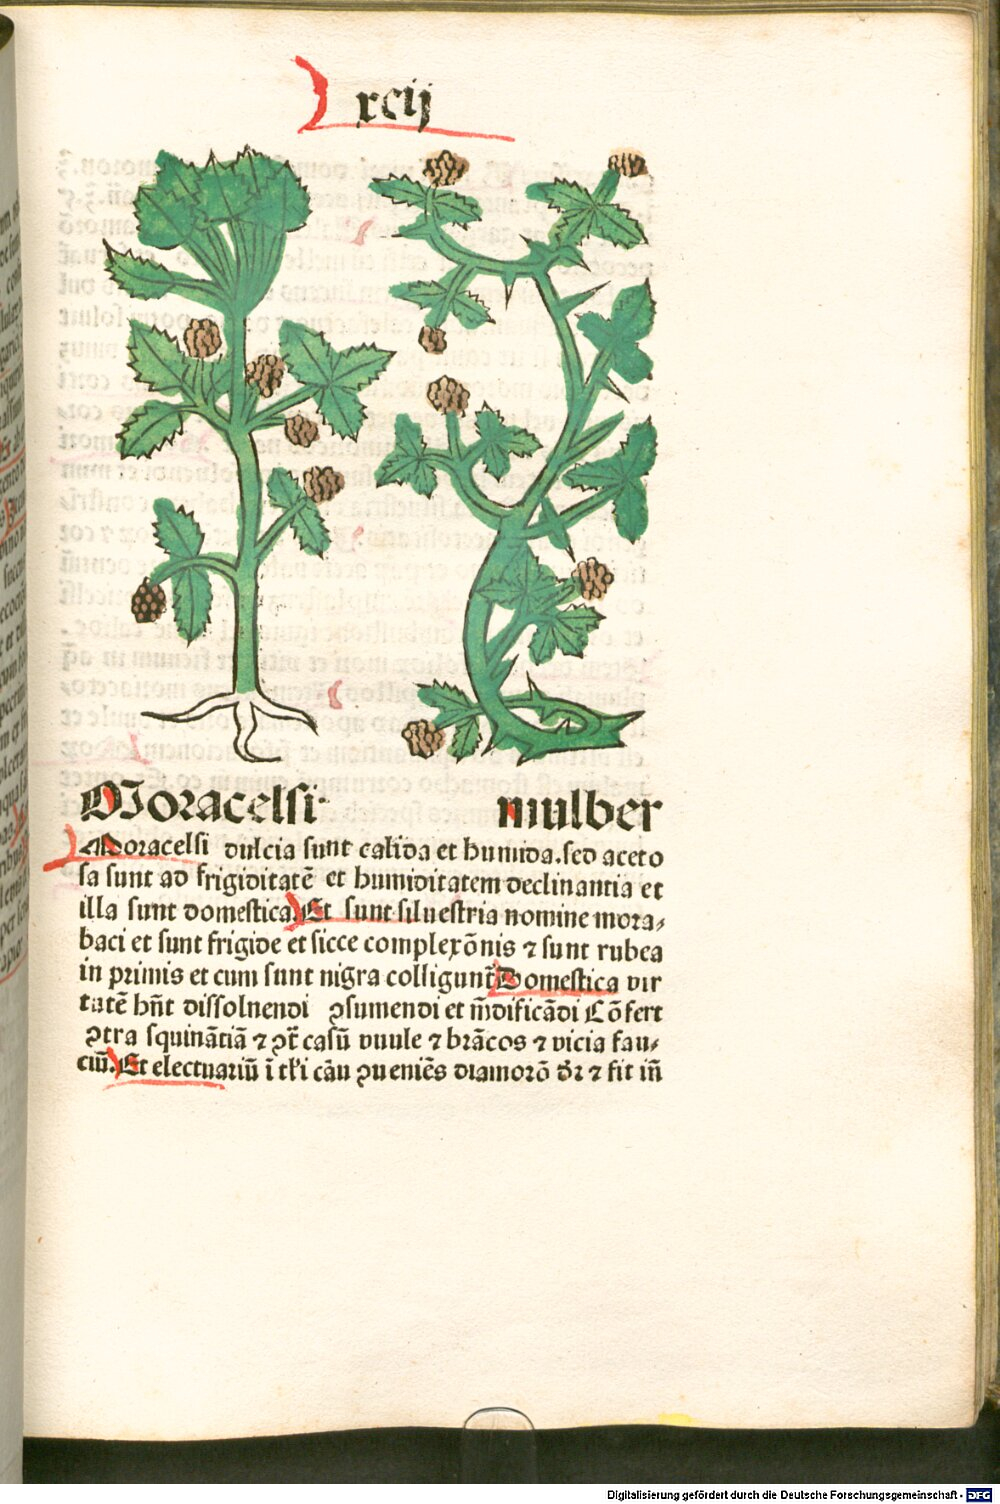 xcij
Moracelsi mulber
Moracelsi dulcia sunt calida et humida. sed aceto
sa sunt ad frigiditatē et humiditatem declinantia et
illa sunt domestica. Et sunt siluestria nomine mora⸗
baci et sunt frigide et sicce complexōnis ⁊ sunt rubea
in primis et cum sunt nigra colligunt̄ Domestica vir
tutē hn̄t dissoluendi ꝯsumendi et m̄dificādi Cōfert
ꝯtra squinātiā ⁊ ꝯt̄ casū vuule ⁊ brācos ⁊ vicia fau⸗
ciū. Et electuariū ī
Digitalisierung gefördert durch die Deutsche Forschungsgemeinschaft - DFG